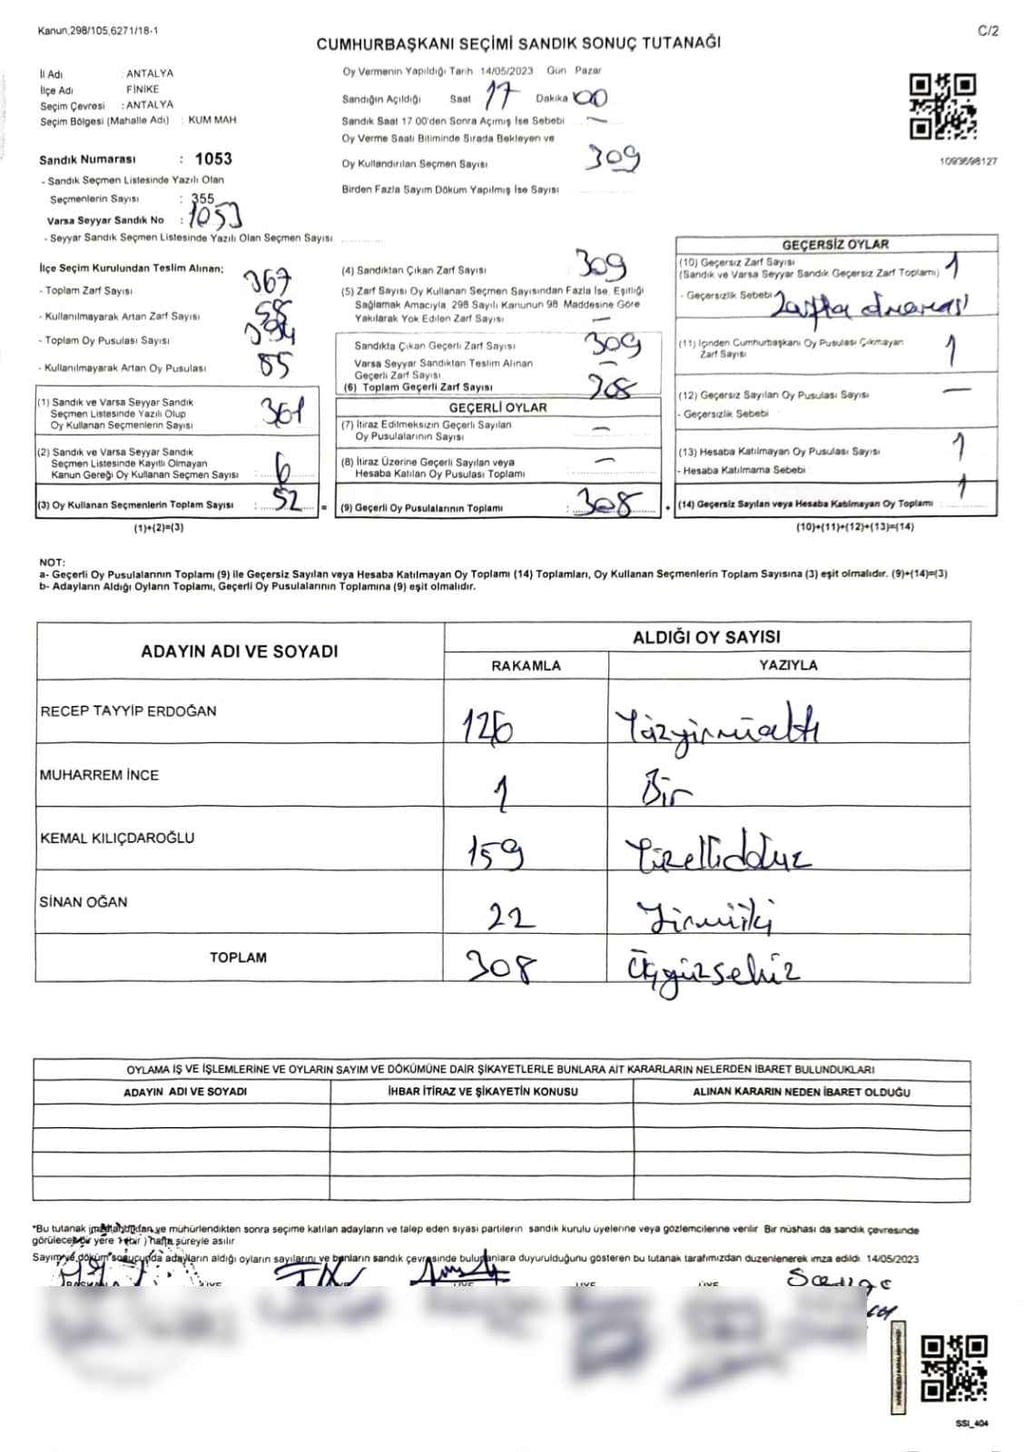 Kanun,298/105,6271/18-1
C/2
CUMHURBAŞKANI SEÇİMİ SANDIK SONUÇ TUTANAĞI
İl Adı : ANTALYA
İlçe Adı FİNİKE
Seçim Çevresi : ANTALYA
Seçim Bölgesi (Mahalle Adı) : KUM MAH
Sandık Numarası : 1053
- Sandık Seçmen Listesinde Yazılı Olan
Seçmenlerin Sayısı : 355
Varsa Seyyar Sandık No : 1053
- Seyyar Sandık Seçmen Listesinde Yazılı Olan Seçmen Sayısı
Oy Vermenin Yapıldığı Tarih 14/05/2023 Gün Pazar
Sandığın Açıldığı Saat 17 Dakika 00
Sandık Saat 17 00'den Sonra Açımış İse Sebebi —
Oy Verme Saati Bitiminde Sırada Bekleyen ve
Oy Kullandırılan Seçmen Sayısı 309
Birden Fazla Sayım Döküm Yapılmış İse Sayısı
1093698127
İlçe Seçim Kurulundan Teslim Alınan;
- Toplam Zarf Sayısı 367
- Kullanılmayarak Artan Zarf Sayısı 58
- Toplam Oy Pusulası Sayısı
- Kullanılmayarak Artan Oy Pusulası 85
(1) Sandık ve Varsa Seyyar Sandık
Seçmen Listesinde Yazılı Olup
Oy Kullanan Seçmenlerin Sayısı 301
(2) Sandık ve Varsa Seyyar Sandık
Seçmen Listesinde Kayıtlı Olmayan
Kanun Gereği Oy Kullanan Seçmen Sayısı : 6
(3) Oy Kullanan Seçmenlerin Toplam Sayısı : 52 =
(1)+(2)=(3)
(4) Sandıktan Çıkan Zarf Sayısı 309
(5) Zarf Sayısı Oy Kullanan Seçmen Sayısından Fazla İse, Eşitliği
Sağlamak Amacıyla 298 Sayılı Kanunun 98 Maddesine Göre
Yakılarak Yok Edilen Zarf Sayısı —
Sandıkta Çıkan Geçerli Zarf Sayısı 309
Varsa Seyyar Sandıktan Teslim Alınan
Geçerli Zarf Sayısı —
(6) Toplam Geçerli Zarf Sayısı 308
GEÇERLİ OYLAR
(7) İtiraz Edilmeksizin Geçerli Sayılan
Oy Pusulalarının Sayısı —
(8) İtiraz Üzerine Geçerli Sayılan veya
Hesaba Katılan Oy Pusulası Toplamı —
(9) Geçerli Oy Pusulalarının Toplamı : 308 +
GEÇERSİZ OYLAR
(10) Geçersiz Zarf Sayısı
(Sandık ve Varsa Seyyar Sandık Geçersiz Zarf Toplamı) 1
- Geçersizlik Sebebi
(11) İçinden Cumhurbaşkanı Oy Pusulası Çıkmayan
Zarf Sayısı 1
(12) Geçersiz Sayılan Oy Pusulası Sayısı —
- Geçersizlik Sebebi
(13) Hesaba Katılmayan Oy Pusulası Sayısı 1
- Hesaba Katılmama Sebebi
(14) Geçersiz Sayılan veya Hesaba Katılmayan Oy Toplamı 1
(10)+(11)+(12)+(13)=(14)
NOT:
a- Geçerli Oy Pusulalarının Toplamı (9) ile Geçersiz Sayılan veya Hesaba Katılmayan Oy Toplamı (14) Toplamları, Oy Kullanan Seçmenlerin Toplam Sayısına (3) eşit olmalıdır. (9)+(14)=(3)
b- Adayların Aldığı Oyların Toplamı, Geçerli Oy Pusulalarının Toplamına (9) eşit olmalıdır.
ADAYIN ADI VE SOYADI
ALDIĞI OY SAYISI
RAKAMLA YAZIYLA
RECEP TAYYİP ERDOĞAN 126 Yüzyirmialtı
MUHARREM İNCE 1 Bir
KEMAL KILIÇDAROĞLU 159 Yüzellidokuz
SİNAN OĞAN 22 Yirmiiki
TOPLAM 308 Üçyüzsekiz
OYLAMA İŞ VE İŞLEMLERİNE VE OYLARIN SAYIM VE DÖKÜMÜNE DAİR ŞİKAYETLERLE BUNLARA AİT KARARLARIN NELERDEN İBARET BULUNDUKLARI
ADAYIN ADI VE SOYADI İHBAR İTİRAZ VE ŞİKAYETİN KONUSU ALINAN KARARIN NEDEN İBARET OLDUĞU
*Bu tutanak imzalandıktan ve mühürlendikten sonra seçime katılan adayların ve talep eden siyasi partilerin sandık kurulu üyelerine veya gözlemcilerine verilir Bir nüshası da sandık çevresinde
görülecek bir yere 1 (bir) hafta süreyle asılır
Sayım ve döküm sonucunda adayların aldığı oyların sayılarını ve bunların sandık çevresinde bulunanlara duyurulduğunu gösteren bu tutanak tarafımızdan düzenlenerek imza edildi 14/05/2023
SSI_404